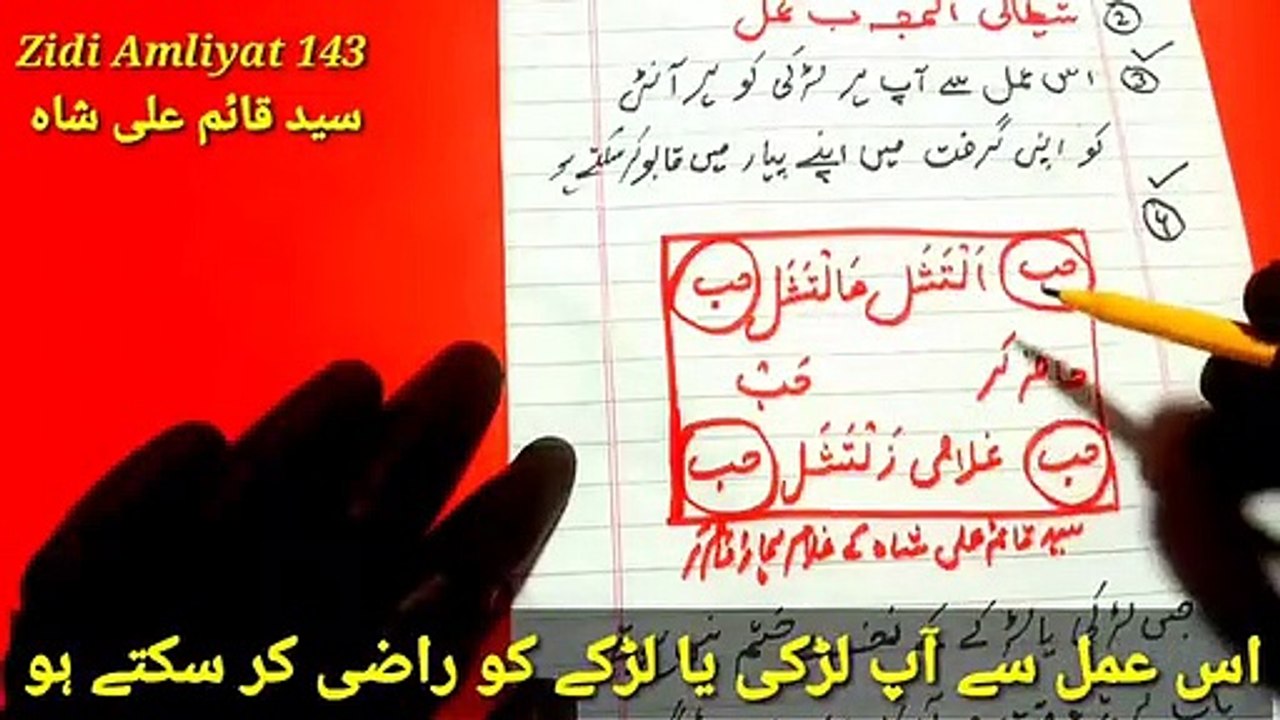 Zidi Amliyat 143
سید قائم علی شاہ
② شیطانی المجرب عمل
③ اس عمل سے آپ ہر لڑکی کو ہر آنٹی
کو اپنی گرفت میں اپنے پیار میں قابو کر سکتے ہو
④
حب اَلْتَشَل حَالْتَشَل حب
حاضر کر حَبْ
حب غلامی زَلْتَشَل حب
سید قائم علی شاہ کے غلام
جس لڑکی یا لڑکے کے
اس عمل سے آپ لڑکی یا لڑکے کو راضی کر سکتے ہو